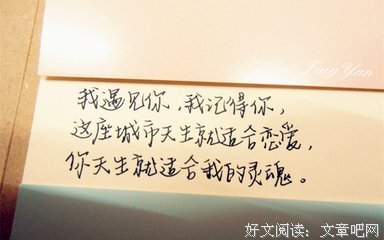 Jing Yan
我遇见你，我记得你，
这座城市天生就适合恋爱，
你天生就适合我的灵魂。
好文阅读：文章吧网